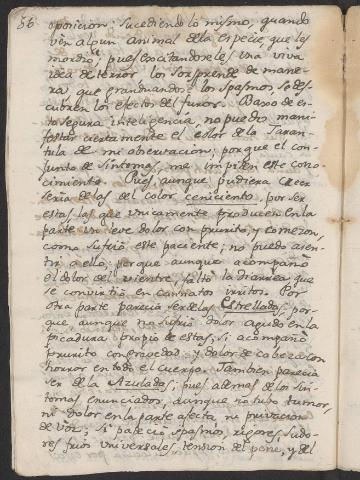 56
oposicion: sucediendo lo mismo, quando
ven algun animal de la especie, que les
mordio, pues excitandosele una viva
idea de terror los sorprende de mane-
ra que graduandose los spasmos, se des-
cubren los efectos del furor. Baxo de es-
ta segura inteligencia no puedo mani-
festar ciertamente el color de la Taran-
tula de mi observacion; porque el con-
junto de sintomas, me impiden este cono-
cimiento. Pues, aunque pudiera creer
seria de las del color ceniciento, por ser
estas las que unicamente producen en la
parte un leve dolor con prurito, y comezon,
como sufrió este paciente; no puedo asen-
tir a ello; porque aunque acompañó
el dolor del vientre, faltó la diarrea que
se convirtió en conatos irritos. Por
otra parte parecia ser de las Estrelladas, por-
que aunque no sufrió dolor agudo en la
picadura propio de estas, si acompañó
prurito con gravedad; y dolor de cabeza con
horror en todo el cuerpo. Tambien parecia
ser de la Azuladas; pues ademas de los sin-
tomas enunciados, aunque no tubo tumor,
ni dolor en la parte afecta ni privacion
de voz; si padeció spasmos, rigores, sudo-
res frios universales, tension del pene, y del